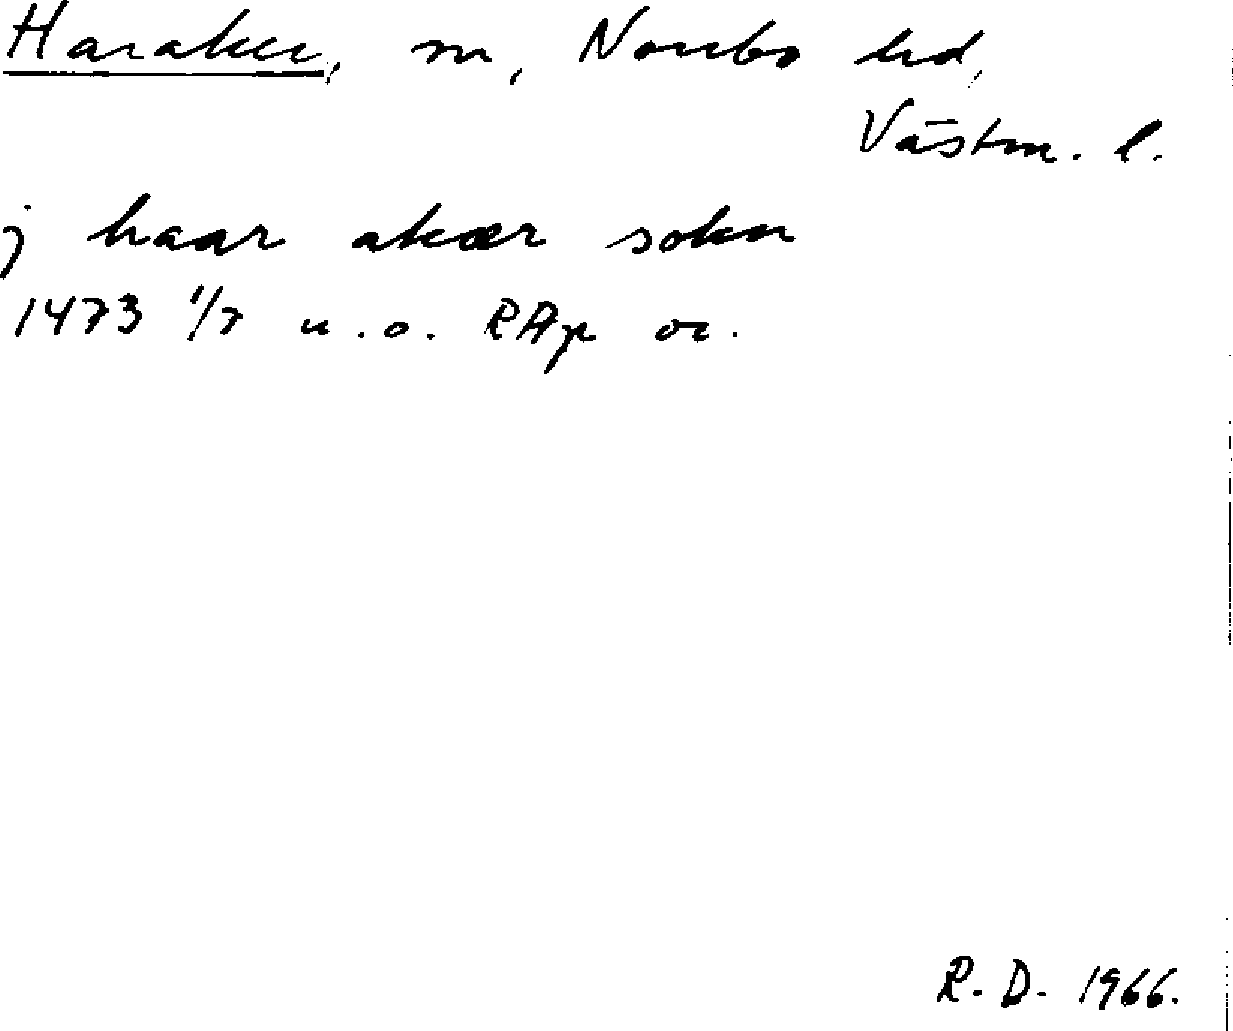 Haraker, sn, Norrbo hd,
Västm. l.
j haar akær sokn
1473 1/7 u.o. RAp or.
R. D. 1966.